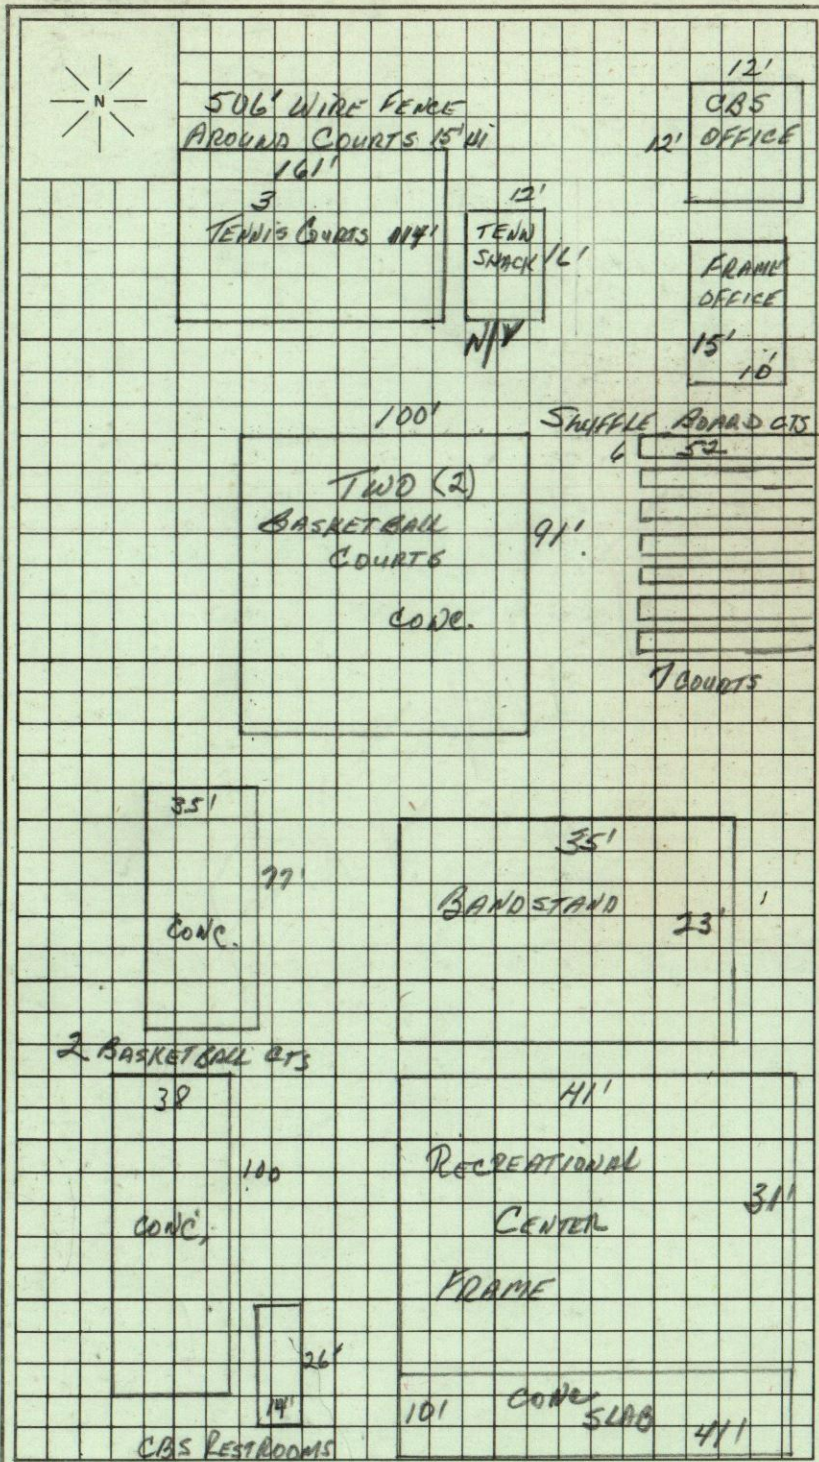 N
506' WIRE FENCE
AROUND COURTS 15' HI
161'
3
TENNIS COURTS 114'
12'
TENN
SNACK 16'
N/V
12'
CBS
OFFICE
12'
FRAME
OFFICE
15'
10'
100'
TWO (2)
BASKETBALL
COURTS
CONC.
91'
SHUFFLE BOARD CTS
6 52
7 COURTS
35'
77'
CONC.
35'
BANDSTAND
23'
2 BASKETBALL CTS
38
100
CONC,
41'
RECREATIONAL
CENTER
FRAME
31'
26'
14'
CBS RESTROOMS
10'
CONC
SLAB
41'